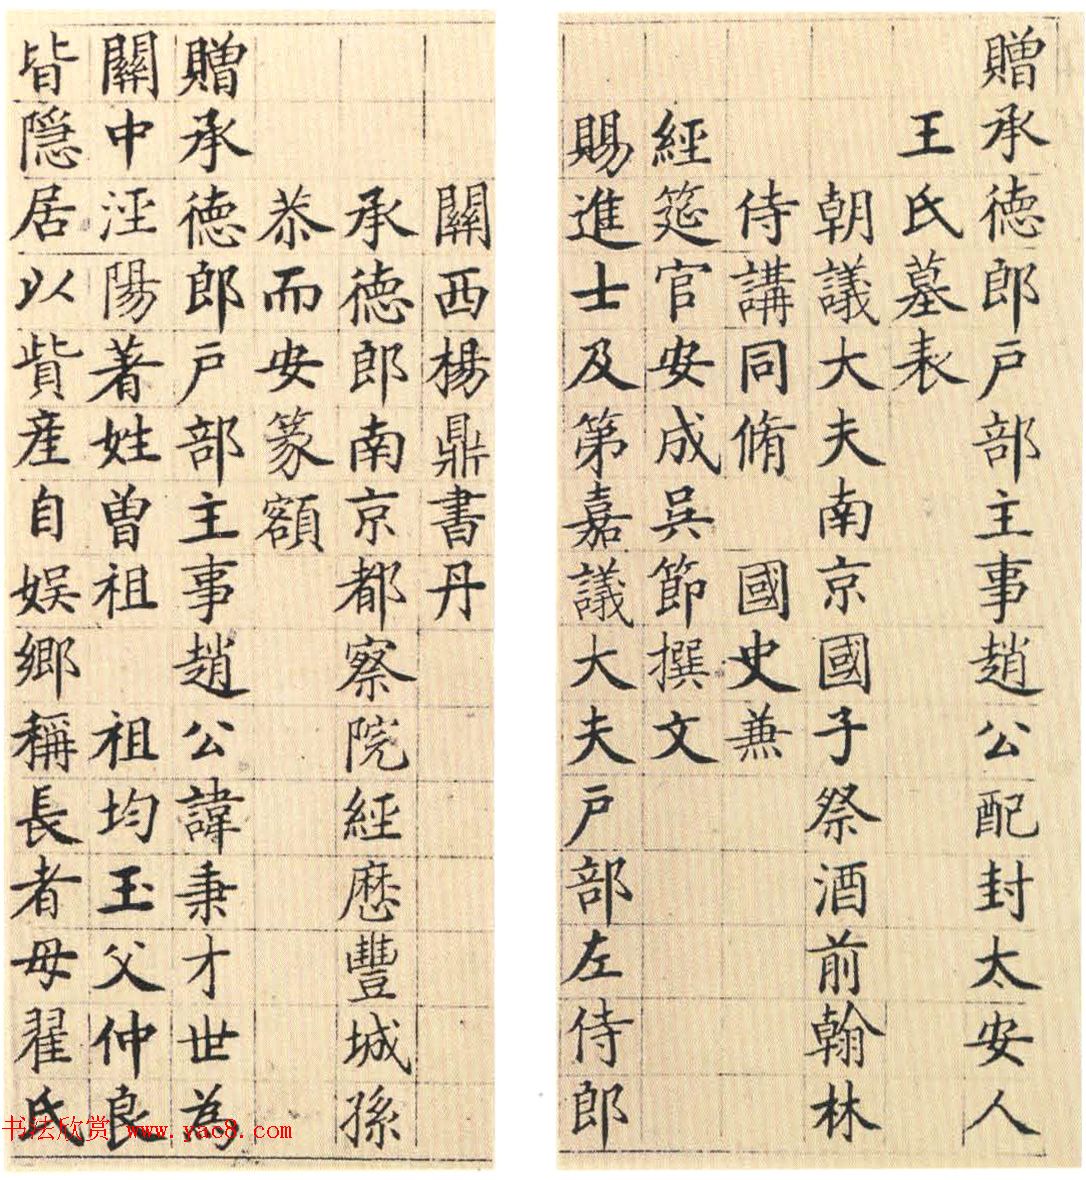 贈承德郎戶部主事趙公配封太安人
王氏墓表
朝議大夫南京國子祭酒前翰林
侍講同脩 國史兼
經筵官安成吳節撰文
賜進士及第嘉議大夫戶部左侍郎
關西楊鼎書丹
承德郎南京都察院經歷豐城孫
恭而安篆額
贈承德郎戶部主事趙公諱秉才世為
關中涇陽著姓曾祖 祖均玉父仲良
皆隱居以貲產自娛鄉稱長者母翟氏
书法欣赏 www.yac8.com